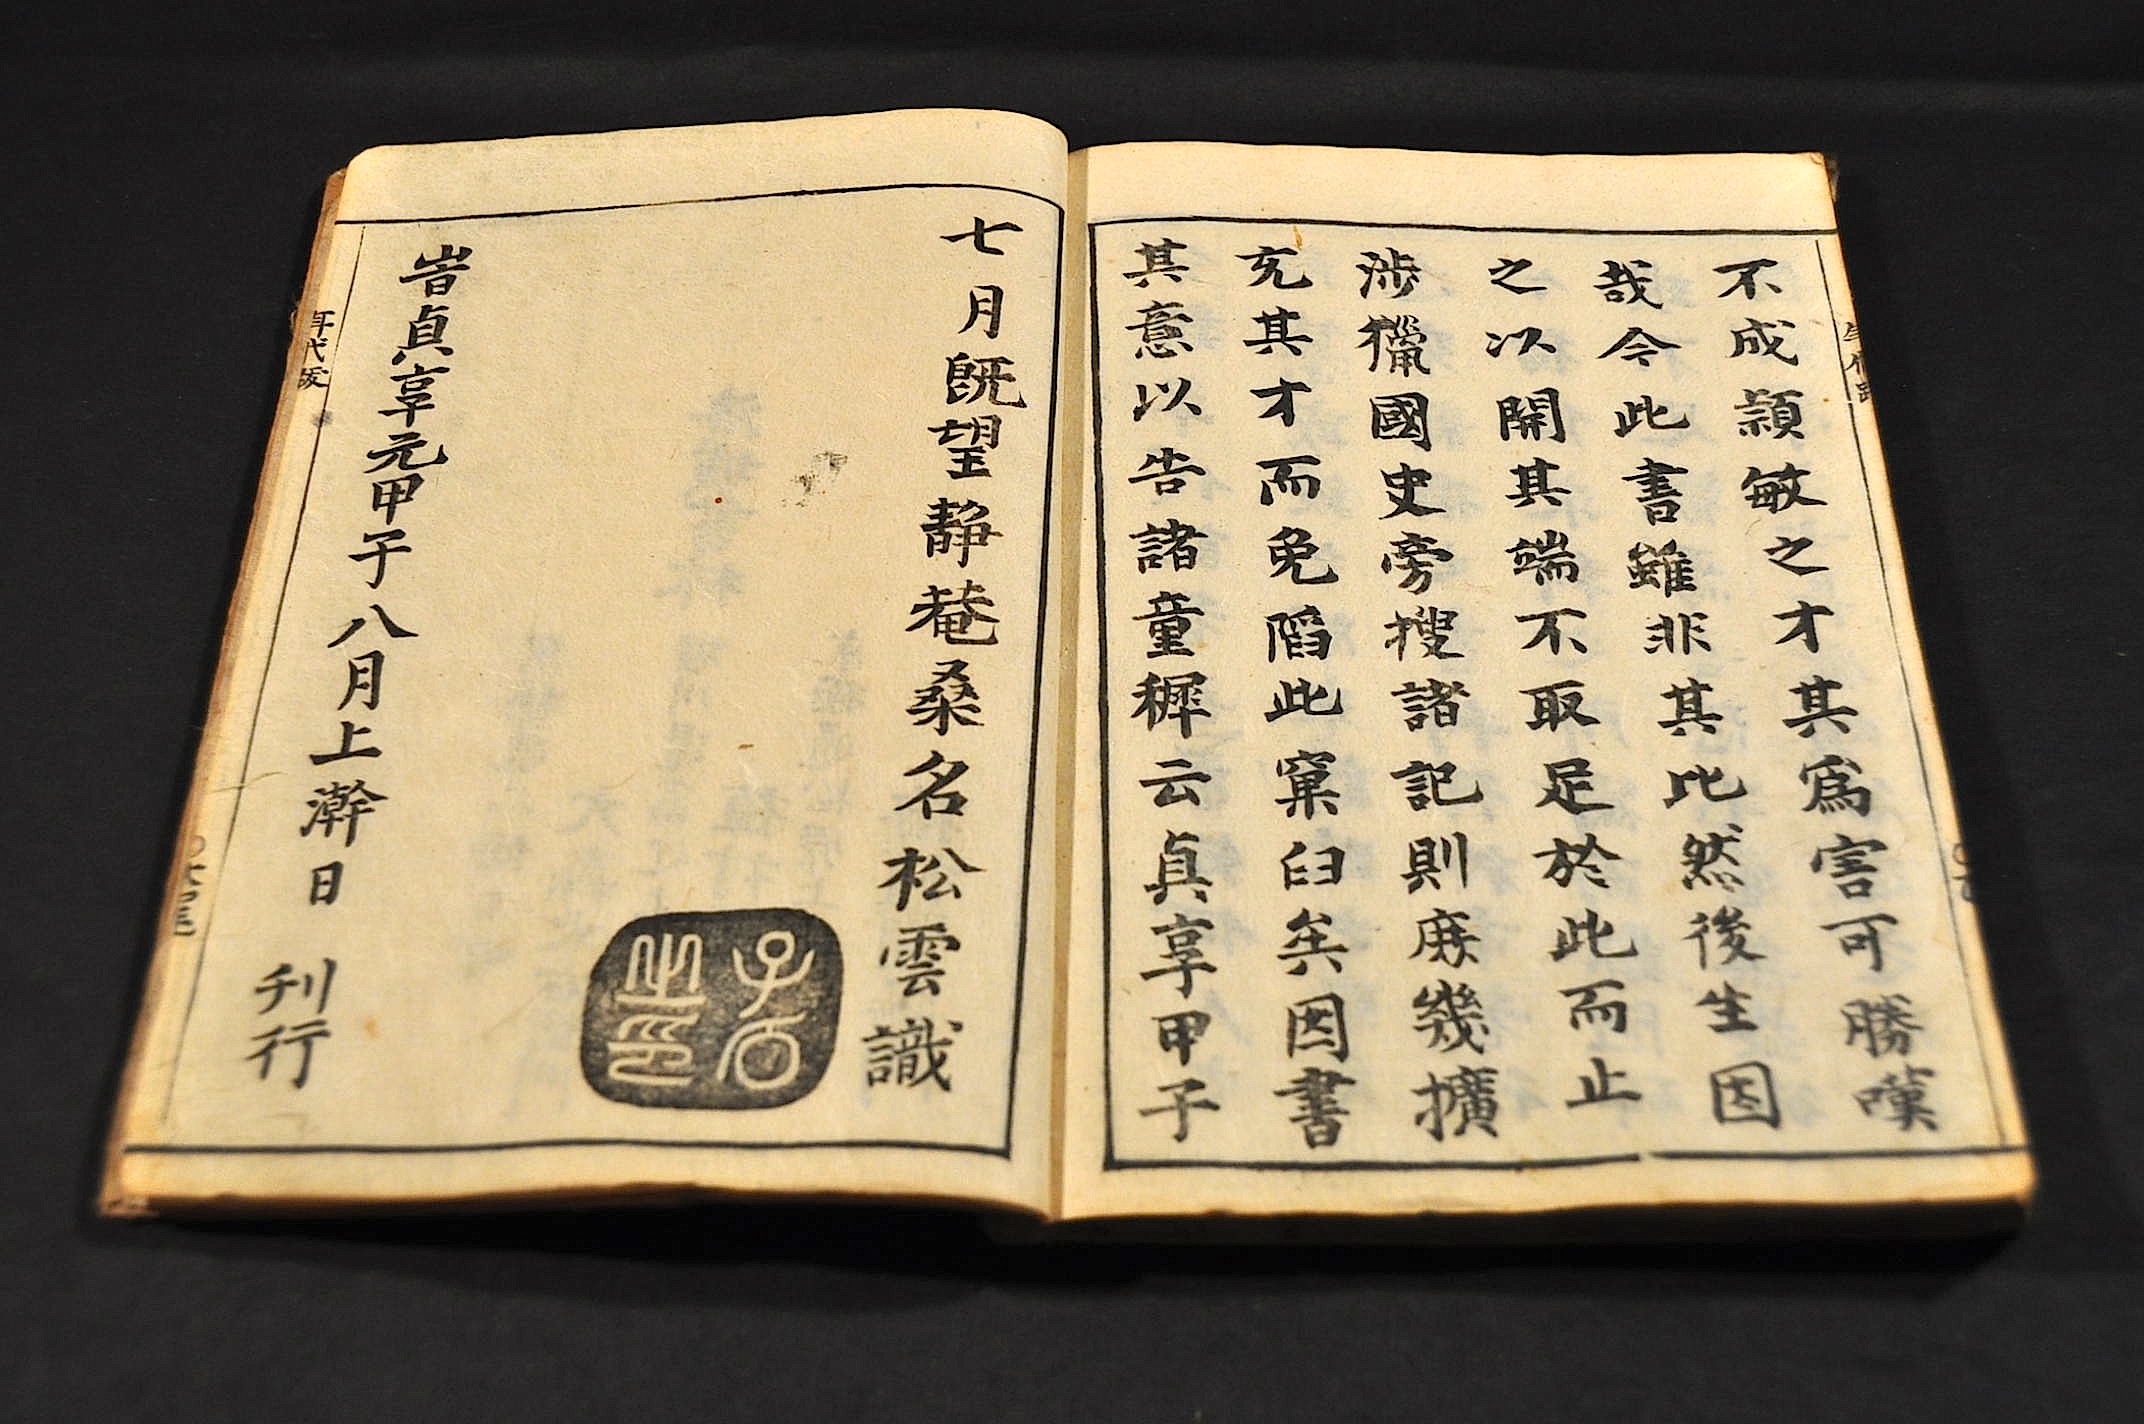 不成頴敏之才其爲害可勝嘆
哉今此書雖非其比然後生因
之以開其端不取足於此而止
渉獵國史旁搜諸記則庶幾擴
充其才而免陷此窠臼矣因書
其意以告諸童穉云貞享甲子
七月既望靜菴桑名松雲識
旹貞享元甲子八月上澣日 刊行